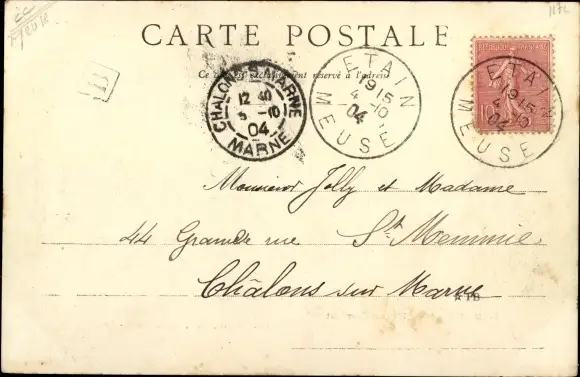 CARTE POSTALE
Ce côté est exclusivement réservé à l'adresse
CHALONS S MARNE
12 40
5 -10
04
MARNE
ETAIN
19 15
4 -10
04
MEUSE
ETAIN
19 15
4 -10
04
MEUSE
10
B
Monsieur Jolly et Madame
44 Grande rue St Memmie
Châlons sur Marne